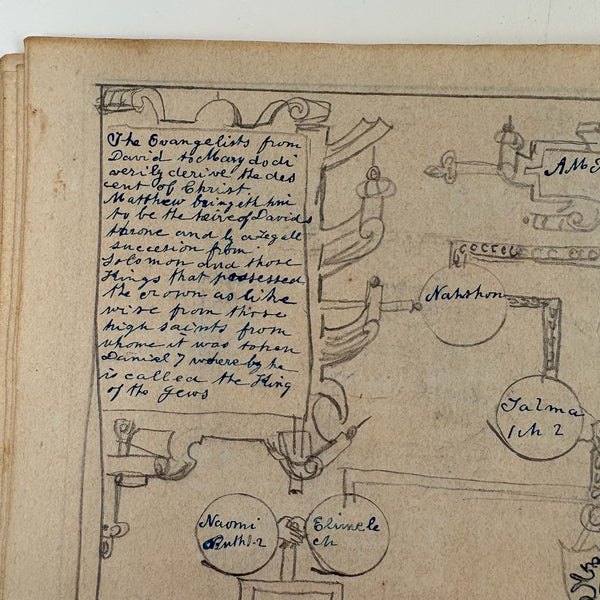 The Evangelists from
David to Mary do di
verily derive the des
cent of Christ.
Matthew bringeth him
to be the heire of Davids
throne and by a Legall
succesion from
Solomon and those
Kings that possessed
the crown as like
wise from those
high saints from
whome it was taken
Daniel 7 where by he
is called the King
of the Jews
Nahshon
Salma
1 ch 2
Naomi
Ruth 1.2
Elimele
ch